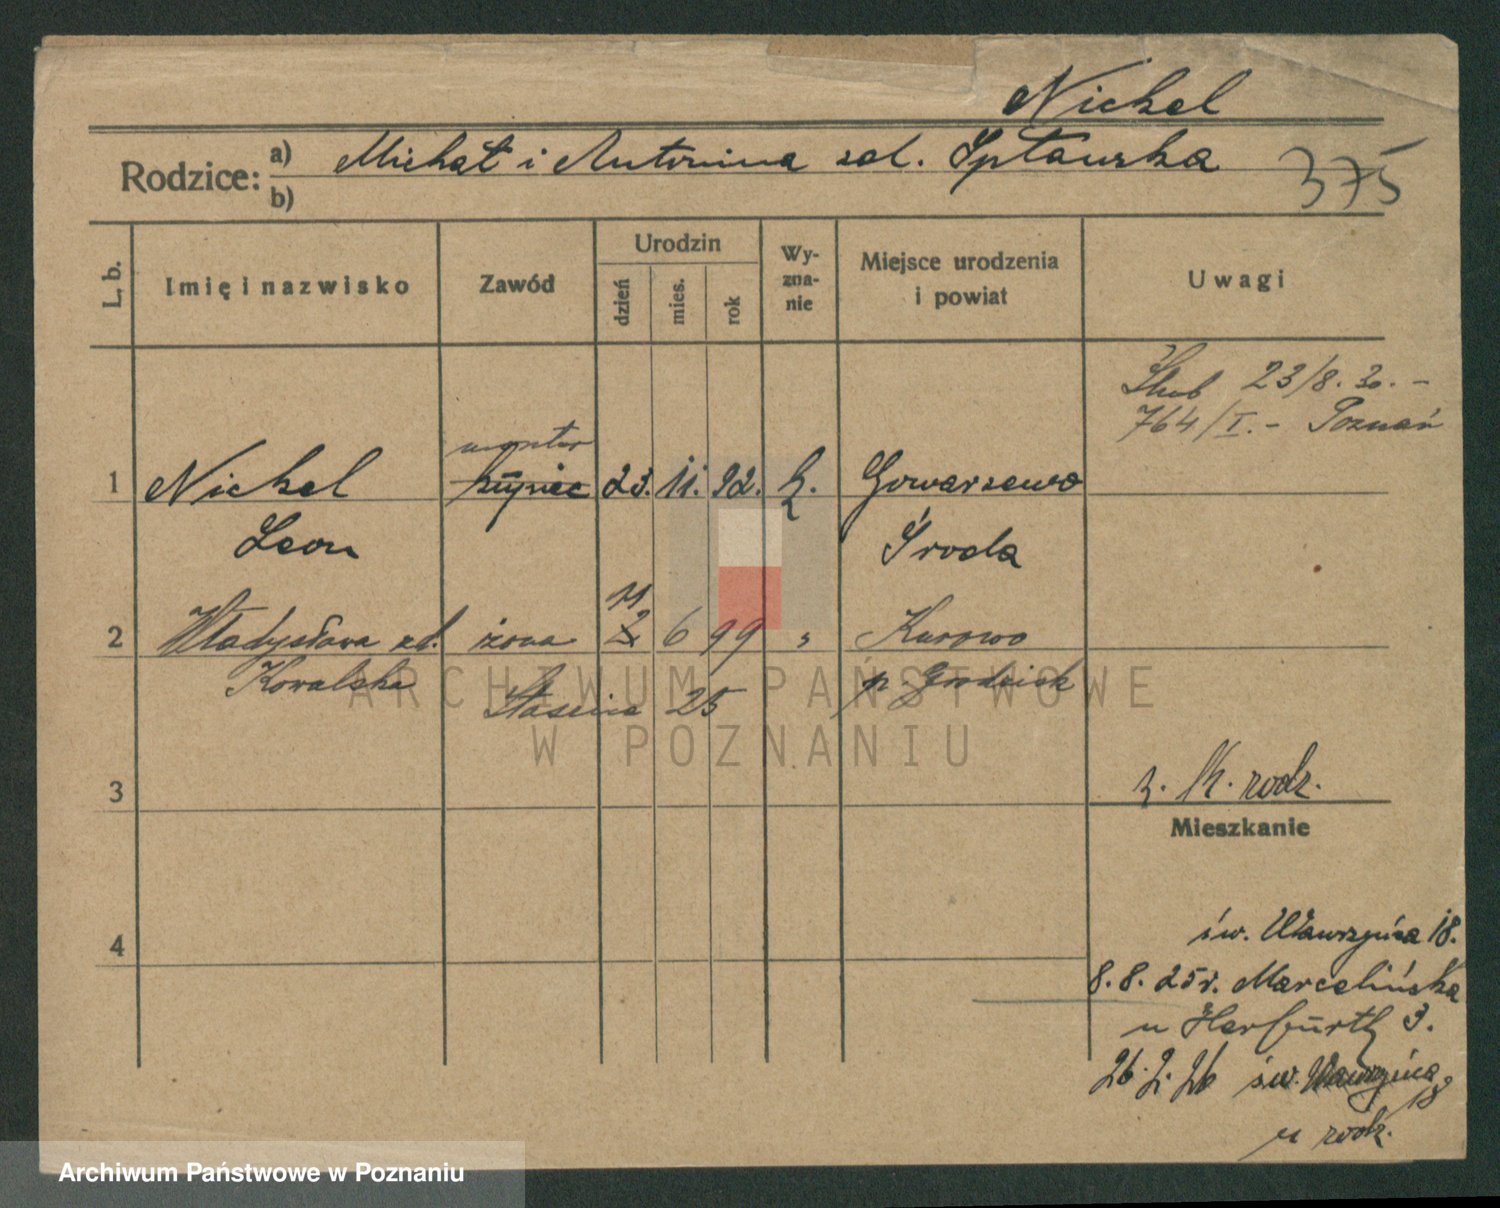 Nickel
Rodzice: a) Michał i Antonina zd. Szpławska 375
b)
L. b. Imię i nazwisko Zawód Urodzin dzień mies. rok Wyznanie Miejsce urodzenia i powiat Uwagi
Ślub 23/8. 30. -
764/I. - Poznań
monter
1 Nickel kupiec 23. 11. 92. k. Gowarzewo
Leon Środa
11
2 Władysława zd. żona 2 6 99 " Kurowo
Kowalska p. Grodzisk
25
ARCHIWUM PAŃSTWOWE
W POZNANIU
3 z. k. rodz.
Mieszkanie
4 św. Wawrzyńca 18.
8. 8. 25 r. Marcelińska
u Herfurth 3.
26. 2. 26 św. Wawrzyńca
18
u rodz.
Archiwum Państwowe w Poznaniu